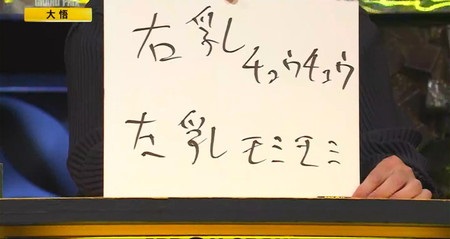 大悟
右乳
チュウチュウ
左乳 モミモミ